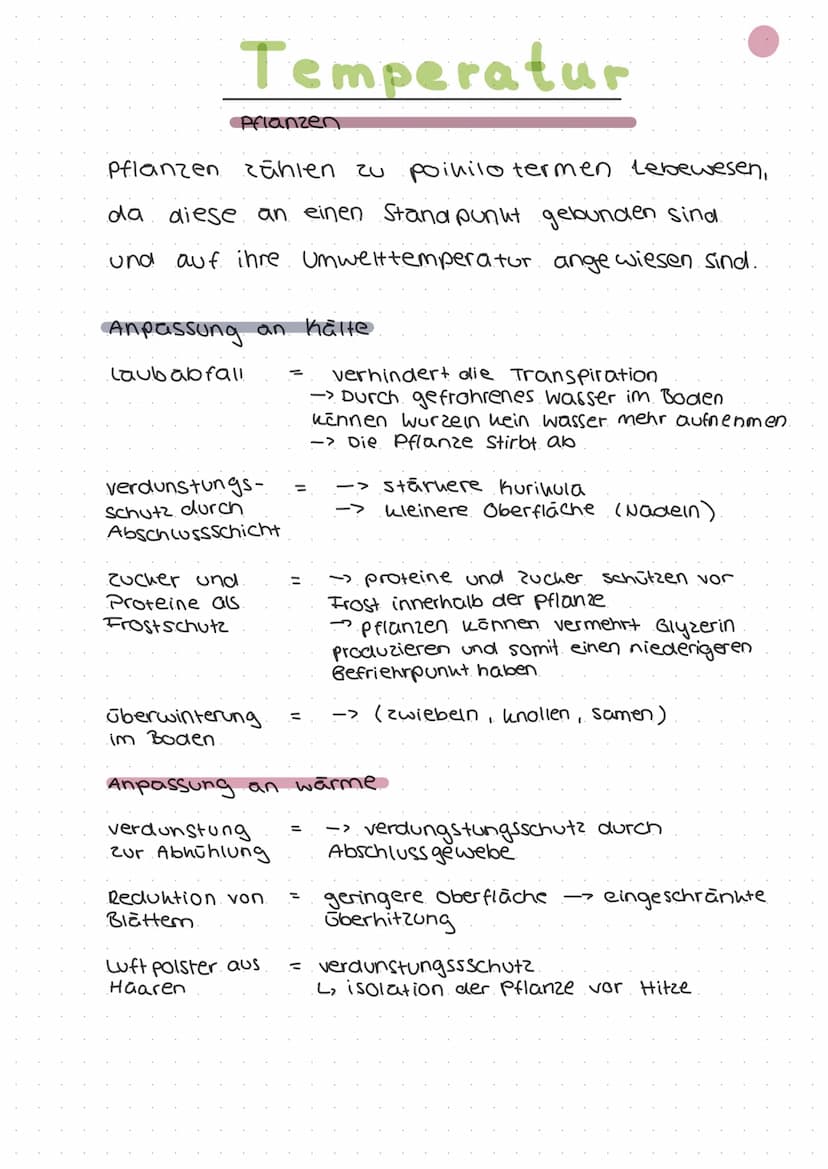 Temperatur
Pflanzen
Pflanzen zählen zu poikilotermen Lebewesen,
da diese an einen Standpunkt gebunden sind
und auf ihre Umwelttemperatur angewiesen sind.
Anpassung an Kälte
Laubabfall = verhindert die Transpiration
-> Durch gefrohrenes Wasser im Boden
können wurzeln kein wasser mehr aufnehmen
-> Die Pflanze stirbt ab
verdunstungs- = -> stärkere Kurikula
schutz durch -> kleinere Oberfläche (Nadeln)
Abschlussschicht
Zucker und = -> proteine und zucker schützen vor
Proteine als Frost innerhalb der Pflanze
Frostschutz -> pflanzen können vermehrt Glyzerin
produzieren und somit einen niederigeren
Gefriehrpunkt haben
überwinterung = -> (zwiebeln, knollen, samen)
im Boden
Anpassung an wärme
verdunstung = -> verdungstungsschutz durch
zur Abkühlung Abschlussgewebe
Reduktion von = geringere Oberfläche -> eingeschränkte
Blättern überhitzung
Luftpolster aus = verdunstungssschutz
Haaren ↳ isolation der Pflanze vor Hitze